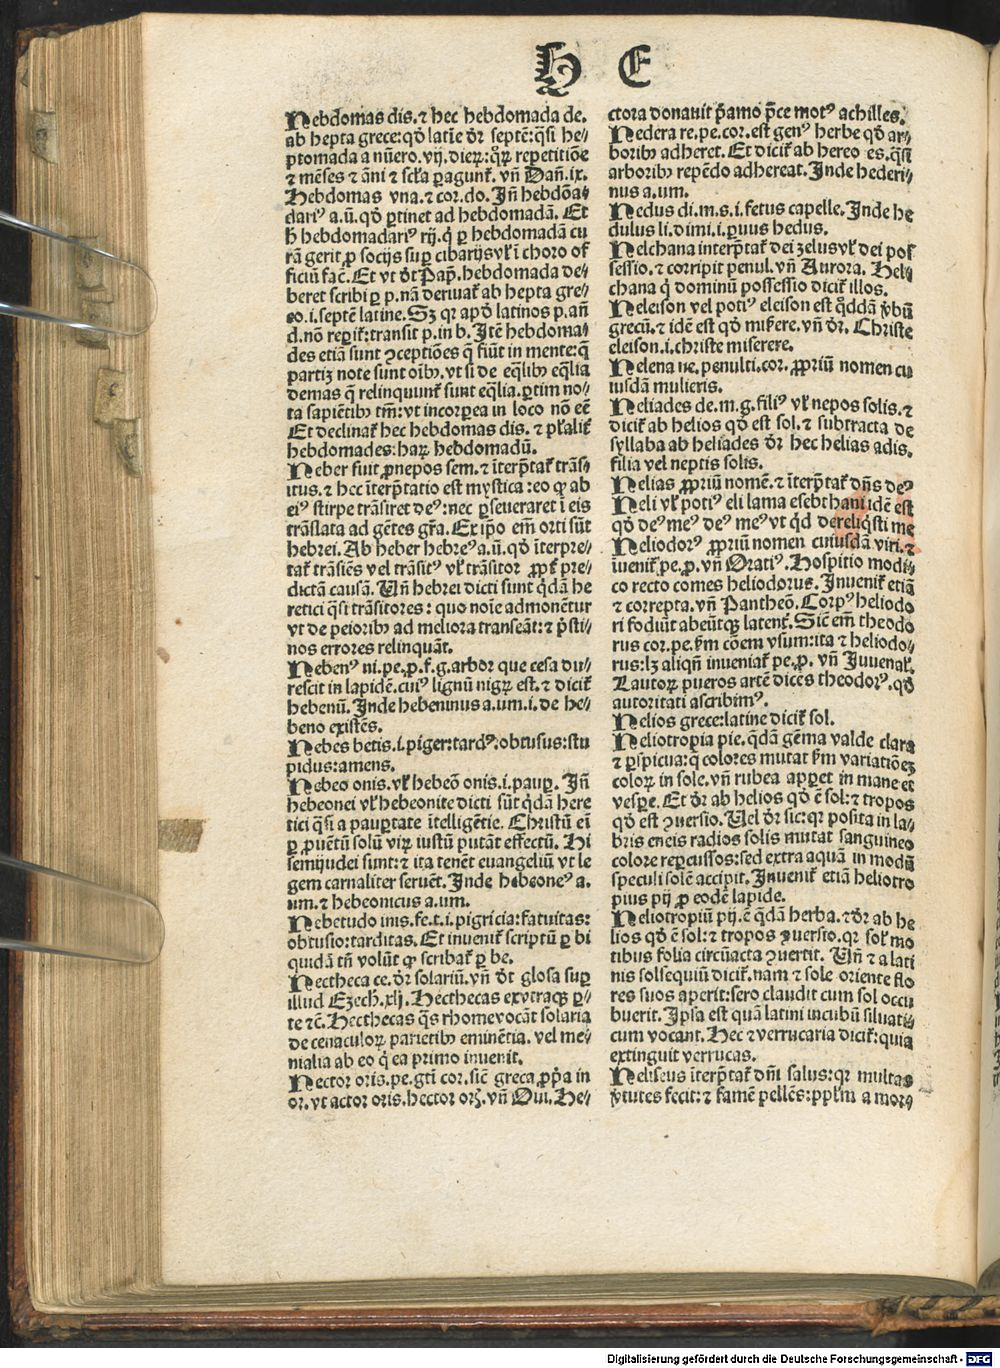 H E
Hebdomas dis. ⁊ hec hebdomada de.
ab hepta grece: qđ latīe dr̄ septē: q̄si he⸗
ptomada a nūero. vij. dierꝝ: q̄rꝝ repetitiōe
⁊ mēses ⁊ āni ⁊ scl̄a ꝑagunt̄. vn̄ Dañ. ix.
Hebdomas vna. ⁊ cor. do. Jn̄ hebdōa⸗
dariꝰ a. ū. qđ ꝑtinet ad hebdomadā. Et
h̄ hebdomadariꝰ rij. q̇ ꝑ hebdomadā cu
rā gerit ꝓ socijs suꝑ cibarijs vl̄ ī choro of
ficiū fac̄. Et vt dt̄ Pap̄. hebdomada de⸗
beret scribi ꝑ p. nā deriuat̄ ab hepta gre⸗
co. i. septē latine. Sꝫ qꝛ apđ latinos p. añ
d. nō reperit̄: transit p. in b. Jtē hebdoma⸗
des etiā sunt ꝯceptiōes q̄ fiūt in mente: q̄
partiꝫ note sunt oībꝫ. vt si de eq̄libꝫ eq̄lia
demas q̄ relinquunt̄ sunt eq̄lia. ꝑtim no⸗
ta sapiētibꝫ tm̄: vt incorꝑea in loco nō eē
Et declinat̄ hec hebdomas dis. ⁊ pl̄alit̄
hebdomades: harꝝ hebdomadū.
Heber fuit ꝓnepos sem. ⁊ īterp̄tat̄ trāsi⸗
tus. ⁊ hec īterp̄tatio est mystica: eo ꝙ ab
eiꝰ stirpe trāsiret deꝰ: nec ꝑseueraret ī eis
trāslata ad gētes gr̄a. Ex ip̄o em̄ orti sūt
hebrei. Ab heber hebreꝰ a. ū. qđ īterpre⸗
tat̄ trāsiēs vel trāsitꝰ vl̄ trāsitor ꝓpt̄ pre⸗
dictā causā. Vn̄ hebrei dicti sunt q̇dā he
retici q̄si trāsitores: quo noīe admonētur
vt de peioribꝫ ad meliora transeāt: ⁊ p̄sti⸗
nos errores relinquāt.
Hebenꝰ ni. pe. ꝓ. f. g. arbor que cesa du⸗
rescit in lapidē. cuiꝰ lignū nigꝝ est. ⁊ dicit̄
hebenū. Jnde hebeninus a. um. i. de he⸗
beno existēs.
Hebes betis. i. piger: tardꝰ: obtusus: stu
pidus: amens.
Hebeo onis. vl̄ hebeō onis. i. pauꝑ. Jn̄
hebeonei vl̄ hebeonite dicti sūt q̇dā here
tici q̄si a pauꝑtate ītelligētie. Christū eī
ꝑ ꝓuētū solū virꝝ iustū putāt effectū. Hi
semijudei sunt: ⁊ ita tenēt euangeliū vt le
gem carnaliter seruēt. Jnde hebeoneꝰ a.
um. ⁊ hebeonicus a. um.
Hebetudo inis. fe. t. i. pigricia: fatuitas:
obtusio: tarditas. Et inuenit̄ scriptū ꝑ bi
quidā tn̄ volūt ꝙ scribat̄ ꝑ be.
Hectheca ce. dr̄ solariū. vn̄ dt̄ glosa suꝑ
illud Ezech̄. xlj. Hecthecas ex vtraqꝫ ꝑ⸗
te ⁊c̄. Hecthecas q̄s rhome vocāt solaria
de cenaculorꝝ parietibꝫ eminētia. vel me⸗
nialia ab eo q̇ ea primo inuenit.
Hector oris. pe. gt̄i cor. sic̄ greca ꝓp̄a in
or. vt actor oris. hector orꝫ. vn̄ Oui. He⸗
ctora donauit p̄amo p̄ce motꝰ achilles.
Hedera re. pe. cor. est genꝰ herbe qđ ar⸗
boribꝫ adheret. Et dicit̄ ab hereo es. q̄si
arboribꝫ repēdo adhereat. Jnde hederi⸗
nus a. um.
Hedus di. m. s. i. fetus capelle. Jnde he
dulus li. dimi. i. ꝑuus hedus.
Helchana interp̄tat̄ dei zelus vl̄ dei pos
sessio. ⁊ corripit penul. vn̄ Aurora. Hel⸗
chana q̇ dominū possessio dicit̄ illos.
Heleison vel potiꝰ eleison est q̇ddā v̄bū
grecū. ⁊ idē est qđ miserē. vn̄ dr̄. Christe
eleison. i. christe miserere.
Helena ne. penulti. cor. ꝓpriū nomen cu
iusdā mulieris.
Heliades de. m. g. filiꝰ vl̄ nepos solis. ⁊
dicit̄ ab helios qđ est sol. ⁊ subtracta de
syllaba ab heliades dr̄ hec helias adis.
filia vel neptis solis.
Helias ꝓpriū nomē. ⁊ īterp̄tat̄ dn̄s deꝰ
Heli vl̄ potiꝰ eli lama esebthani idē est
qđ deꝰ meꝰ deꝰ meꝰ vt q̇d dereliq̇sti me
Heliodorꝰ ꝓpriū nomen cuiusdā viri. ⁊
īuenit̄ pe. ꝓ. vn̄ Oratiꝰ. Hospitio modi⸗
co recto comes heliodorus. Jnuenit̄ etiā
⁊ correpta. vn̄ Pantheō. Corpꝰ heliodo
ri fodiūt abeūtqꝫ latent̄. Sic̄ em̄ theodo
rus cor. pe. ẜm cōem vsum: ita ⁊ heliodo⸗
rus: lꝫ aliqn̄ inueniat̄ pe. ꝓ. vn̄ Juuenal̄.
Lautorꝝ pueros artē dices theodorꝰ. qđ
autoritati ascribimꝰ.
Helios grece: latine dicit̄ sol.
Heliotropia pie. q̄dā gēma valde clara
⁊ ꝑspicua: q̄ colores mutat ẜm variatiōeꝫ
colorꝝ in sole. vn̄ rubea apꝑet in mane et
vesꝑe. Et dr̄ ab helios qđ ē sol: ⁊ tropos
qđ est ꝯuersio. Uel dr̄ sic: qꝛ posita in la⸗
bris eneis radios solis mutat sanguineo
colore reꝑcussos: sed extra aquā in modū
speculi solē accipit. Jnuenit̄ etiā heliotro
pius pij ꝓ eodē lapide.
Heliotropiū pij. ē q̄dā herba. ⁊ dr̄ ab he
lios qđ ē sol: ⁊ tropos ꝯuersio. qꝛ sol̄ mo
tibus folia circūacta ꝯuertit. Vn̄ ⁊ a lati
nis solsequiū dicit̄. nam ⁊ sole oriente flo
res suos aperit: sero claudit cum sol occu
buerit. Jpsa est quā latini incubū siluati⸗
cum vocant. Hec ⁊ verrucaria dicit̄: quia
extinguit verrucas.
Heliseus īterp̄tat̄ dn̄i salus: qꝛ multas
v̄tutes fecit: ⁊ famē pellēs: ppl̄m a mor⸗
Digitalisierung gefördert durch die Deutsche Forschungsgemeinschaft - DFG